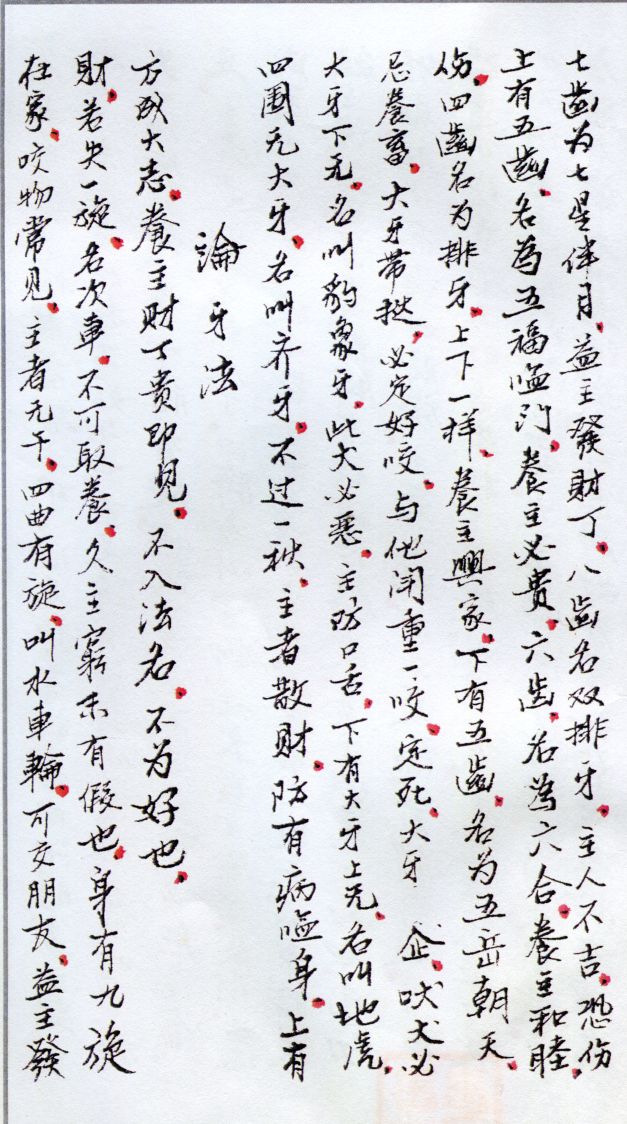 七齒为七星伴月。益主發財丁。八齒名双排牙。主人不吉。恐伤
上有五齒。名為五福临门。養主必貴。六齿。名為六合。養主和睦。
伤。四齒名为排牙。上下一样。養主興家。下有五齒。名为五岳朝天。
忌養畜。大牙带挞。必定好咬。与他闹重一咬。定死。大牙 企。吠犬必
大牙下无。名叫豹象牙。此犬必恶。主防口舌。下有大牙上无。名叫地虎。
四圍无大牙。名叫齐牙。不过一秧。主者散财。防有病临身。上有
論牙法
方成大志。養主财丁贵即見。不入法名。不为好也。
財。若失一旋。名次車。不可取養。久主窮未有假也。身有九旋
在家。咬物常见。主者无干。四曲有旋。叫水車輪。可交朋友。益主發